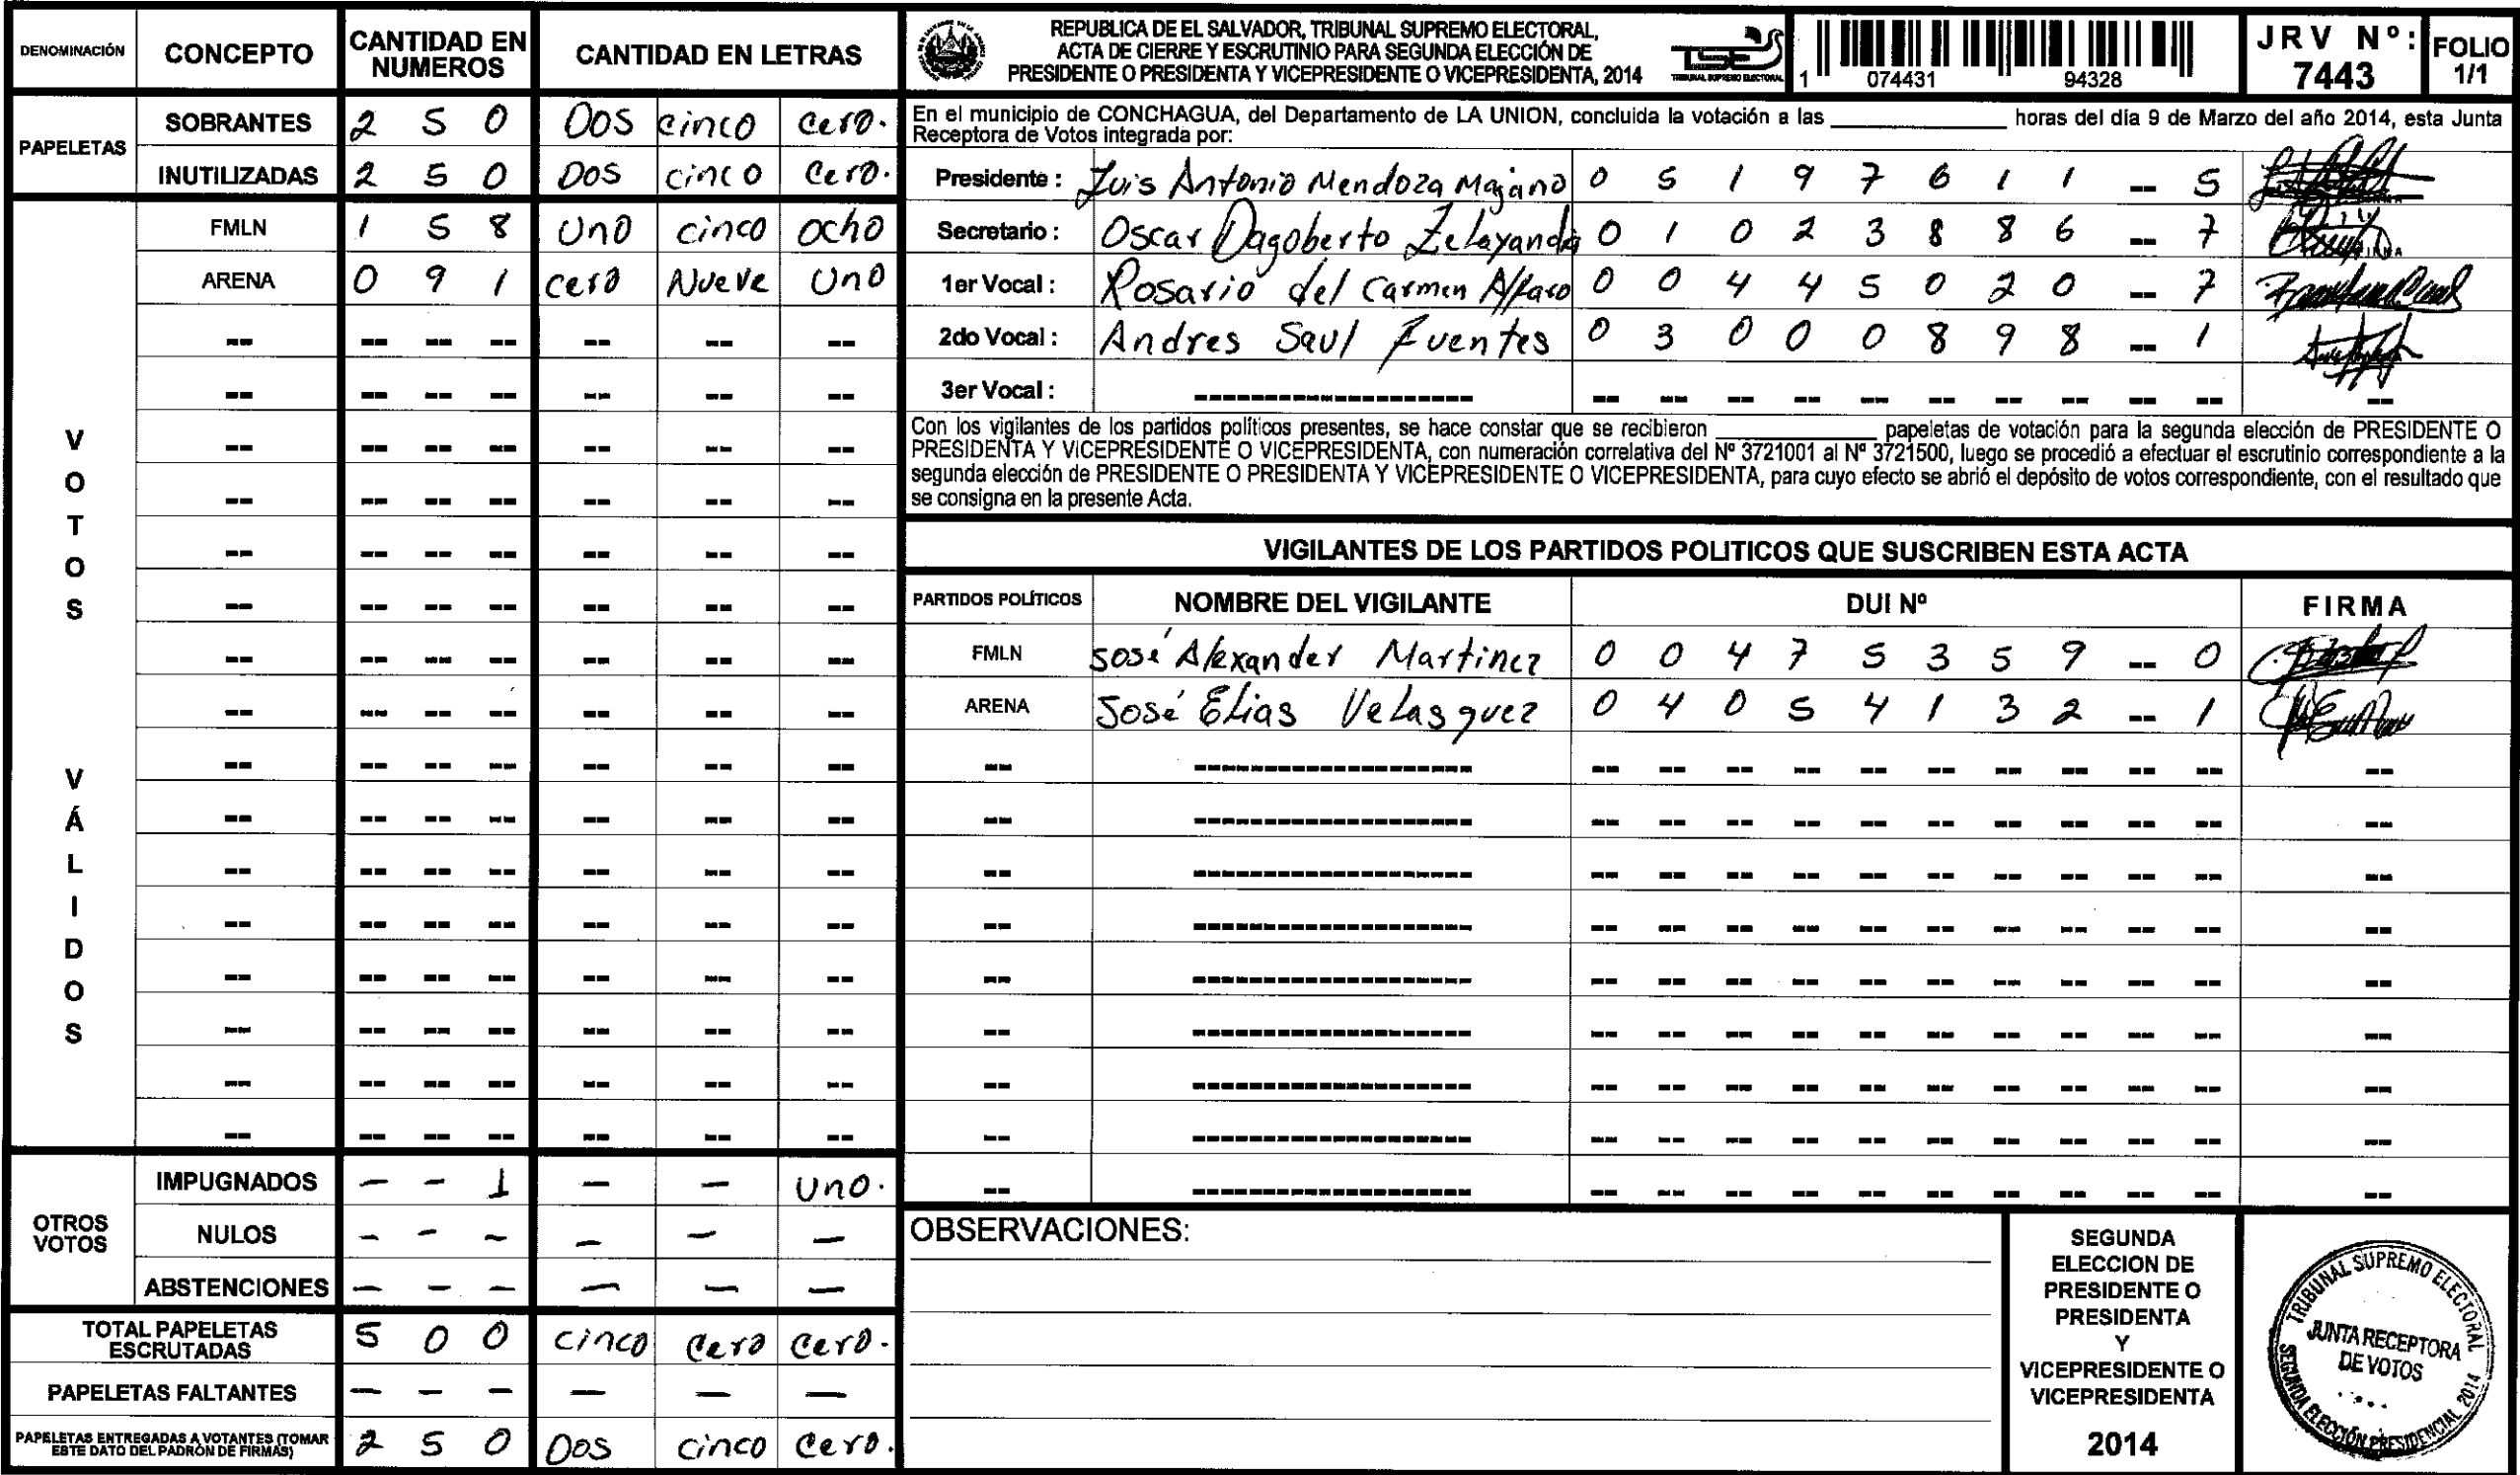 DENOMINACIÓN CONCEPTO CANTIDAD EN NUMEROS CANTIDAD EN LETRAS
PAPELETAS
SOBRANTES 2 5 0 DOS cinco cero.
INUTILIZADAS 2 5 0 DOS cinco cero.
VOTOS VÁLIDOS
FMLN 1 5 8 Uno cinco ocho
ARENA 0 9 1 cero Nueve Uno
OTROS VOTOS
IMPUGNADOS - - 1 - - Uno.
NULOS - - - - - -
ABSTENCIONES - - - - - -
TOTAL PAPELETAS ESCRUTADAS 5 0 0 cinco cero cero.
PAPELETAS FALTANTES - - - - - -
PAPELETAS ENTREGADAS A VOTANTES (TOMAR ESTE DATO DEL PADRÓN DE FIRMAS) 2 5 0 DOS cinco cero.
REPUBLICA DE EL SALVADOR, TRIBUNAL SUPREMO ELECTORAL,
ACTA DE CIERRE Y ESCRUTINIO PARA SEGUNDA ELECCIÓN DE
PRESIDENTE O PRESIDENTA Y VICEPRESIDENTE O VICEPRESIDENTA, 2014
TSE
TRIBUNAL SUPREMO ELECTORAL
1 074431 94328
JRV Nº: 7443
FOLIO 1/1
En el municipio de CONCHAGUA, del Departamento de LA UNION, concluida la votación a las ____ horas del día 9 de Marzo del año 2014, esta Junta
Receptora de Votos integrada por:
Presidente : Luis Antonio Mendoza Majano 0 5 1 9 7 6 1 1 -- 5
Secretario : Oscar Dagoberto Zelayandia 0 1 0 2 3 8 8 6 -- 7
1er Vocal : Rosario del Carmen Alfaro 0 0 4 4 5 0 2 0 -- 7
2do Vocal : Andres Saul Fuentes 0 3 0 0 0 8 9 8 -- 1
3er Vocal :
Con los vigilantes de los partidos políticos presentes, se hace constar que se recibieron ____ papeletas de votación para la segunda elección de PRESIDENTE O
PRESIDENTA Y VICEPRESIDENTE O VICEPRESIDENTA, con numeración correlativa del Nº 3721001 al Nº 3721500, luego se procedió a efectuar el escrutinio correspondiente a la
segunda elección de PRESIDENTE O PRESIDENTA Y VICEPRESIDENTE O VICEPRESIDENTA, para cuyo efecto se abrió el depósito de votos correspondiente, con el resultado que
se consigna en la presente Acta.
VIGILANTES DE LOS PARTIDOS POLITICOS QUE SUSCRIBEN ESTA ACTA
PARTIDOS POLÍTICOS NOMBRE DEL VIGILANTE DUI Nº FIRMA
FMLN José Alexander Martinez 0 0 4 7 5 3 5 9 -- 0
ARENA José Elias Velasquez 0 4 0 5 4 1 3 2 -- 1
OBSERVACIONES:
SEGUNDA
ELECCION DE
PRESIDENTE O
PRESIDENTA
Y
VICEPRESIDENTE O
VICEPRESIDENTA
2014
TRIBUNAL SUPREMO ELECTORAL
JUNTA RECEPTORA
DE VOTOS
SEGUNDA ELECCIÓN PRESIDENCIAL 2014